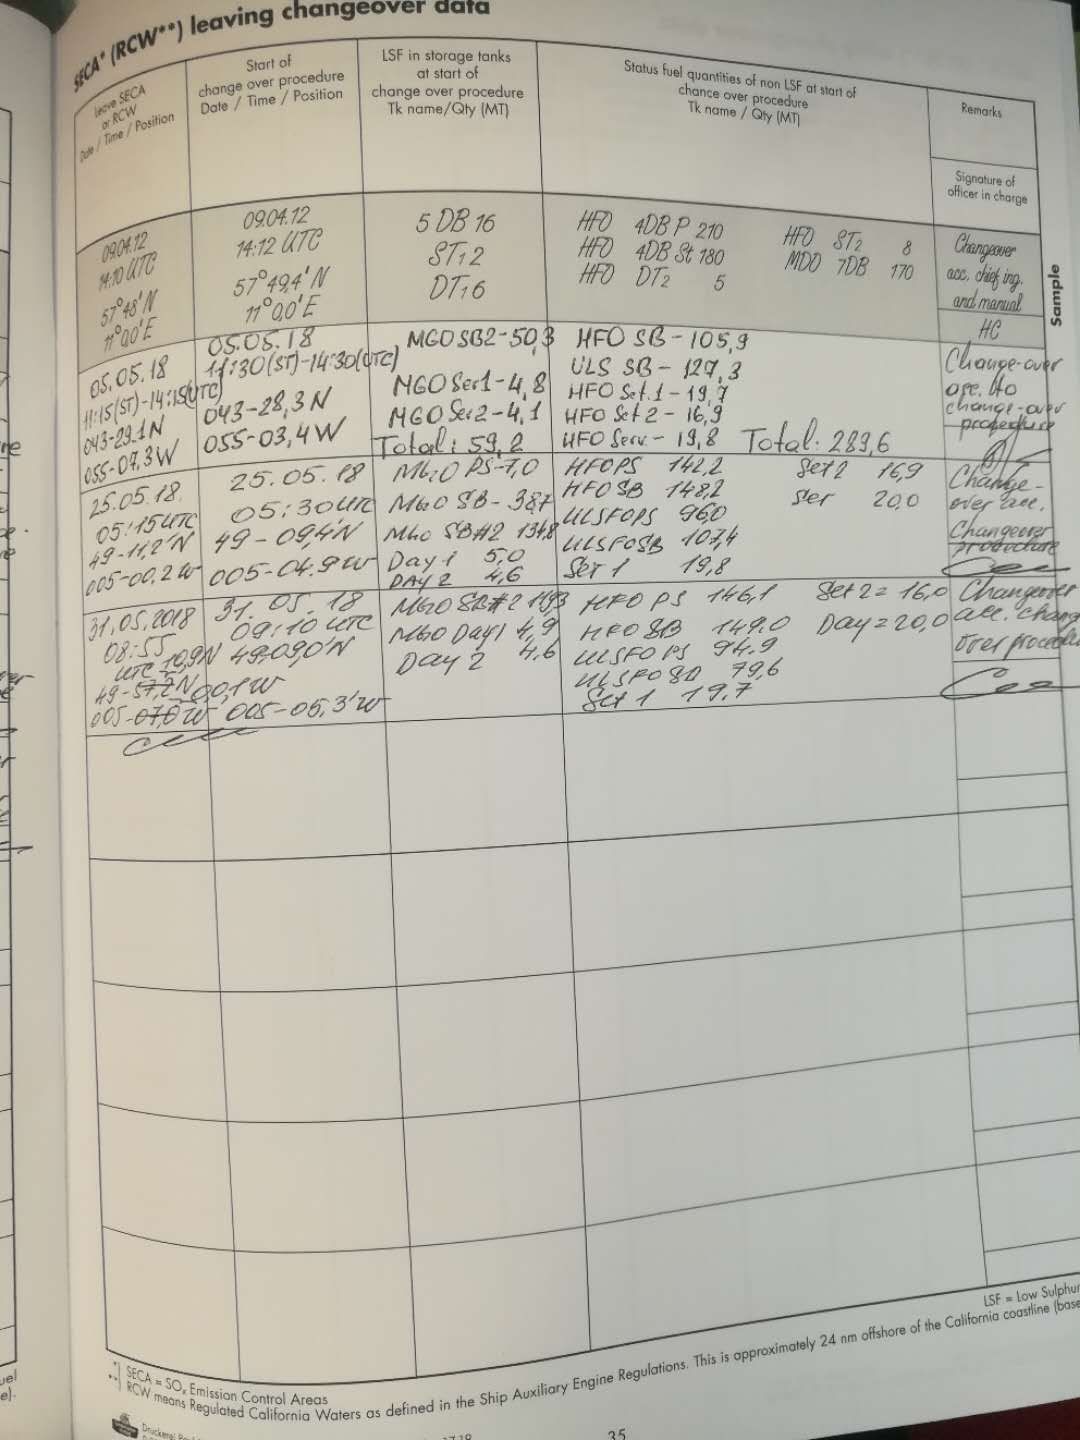 SECA* (RCW**) leaving changeover data
leave SECA
or RCW
Date / Time / Position
Start of
change over procedure
Date / Time / Position
LSF in storage tanks
at start of
change over procedure
Tk name/Qty (MT)
Status fuel quantities of non LSF at start of
chance over procedure
Tk name / Qty (MT)
Remarks
Signature of
officer in charge
09.04.12
14:10 UTC
57°48'N
11°00'E
09.04.12
14:12 UTC
57°49,4'N
11°00'E
5 DB 16
ST1 2
DT1 6
HFO 4DB P 210
HFO 4DB St 180
HFO DT2 5
HFO ST2 8
MDO 7DB 170
Changeover
acc. chief ing.
and manual
HG
Sample
05.05.18
11:15(ST)-14:15(UTC)
043-29.1N
055-07,3W
05.05.18
11:30(ST)-14:30(UTC)
043-28,3N
055-03,4W
MGO SB2-50,3
MGO Ser1-4,8
MGO Ser2-4,1
Total: 59,2
HFO SB-105,9
ULS SB-127,3
HFO Set.1-19,7
HFO Set 2-16,9
HFO Serv.-19,8 Total: 289,6
Change-over
acc. to
change-over
procedure
25.05.18.
05:15UTC
49-11,2'N
005-00,2W
25.05.18
05:30UTC
49-09,4'N
005-04.9W
MGO PS-7,0
MGO SB-38,7
MGO SB#2 134,8
Day 1 5,0
DAY 2 4,6
HFOPS 142,2
HFOSB 148,2
ULSFOPS 96,0
ULSFOSB 107,4
Set 1 19,8
Set 2 16,9
Ser 20,0
Change-
over acc.
Changeover
procedure
31.05.2018
08:55
UTC 10,9N
49-57,2N
00,1W
005-07,0W
31.05.18
09:10 UTC
49-09,0'N
005-05,3'W
MGO SB#2 119,3
MGO Day1 4,9
Day 2 4,6
HFO PS 146,1
HFO SB 149.0
ULSFO PS 94,9
ULSFO SB 79,6
Set 1 19,7
Set 2=16,0
Day=20,0
Changeover
acc. change
over procedure
LSF = Low Sulphur
*) SECA = SOx Emission Control Areas
**) RCW means Regulated California Waters as defined in the Ship Auxiliary Engine Regulations. This is approximately 24 nm offshore of the California coastline (base
35